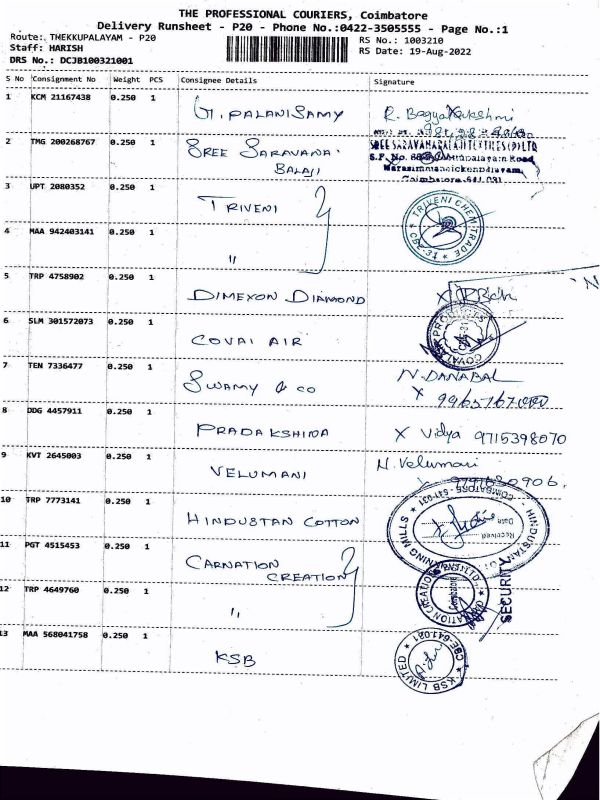 THE PROFESSIONAL COURIERS, Coimbatore
Delivery Runsheet - P20 - Phone No.:0422-3505555 - Page No.:1
Route: THEKKUPALAYAM - P20
Staff: HARISH
DRS No.: DCJB100321001
RS No.: 1003210
RS Date: 19-Aug-2022
S No Consignment No Weight PCS Consignee Details Signature
1 KCM 21167438 0.250 1 G. PALANISAMY
2 TMG 200268767 0.250 1 SREE SARAVANA BALAJI
3 UPT 2080352 0.250 1 TRIVENI TRIVENI CHEM TRADE CBE-31
4 MAA 942403141 0.250 1 "
5 TRP 4758902 0.250 1 DIMEXON DIAMOND X
6 SLM 301572073 0.250 1 COVAI AIR COVAI AIR PRODUCTS
7 TEN 7336477 0.250 1 SWAMY & CO N. DANABAL X
8 DDG 4457911 0.250 1 PRADAKSHINA X Vidya 9715398070
9 KVT 2645003 0.250 1 VELUMANI N. Velumani
10 TRP 7773141 0.250 1 HINDUSTAN COTTON HINDUSTAN SPINNING MILLS COIMBATORE - 641 031 Received Date
11 PGT 4515453 0.250 1 CARNATION CREATION
12 TRP 4649760 0.250 1 " Coimbatore SECURITY
13 MAA 568041758 0.250 1 KSB KSB LIMITED CBE-641.021